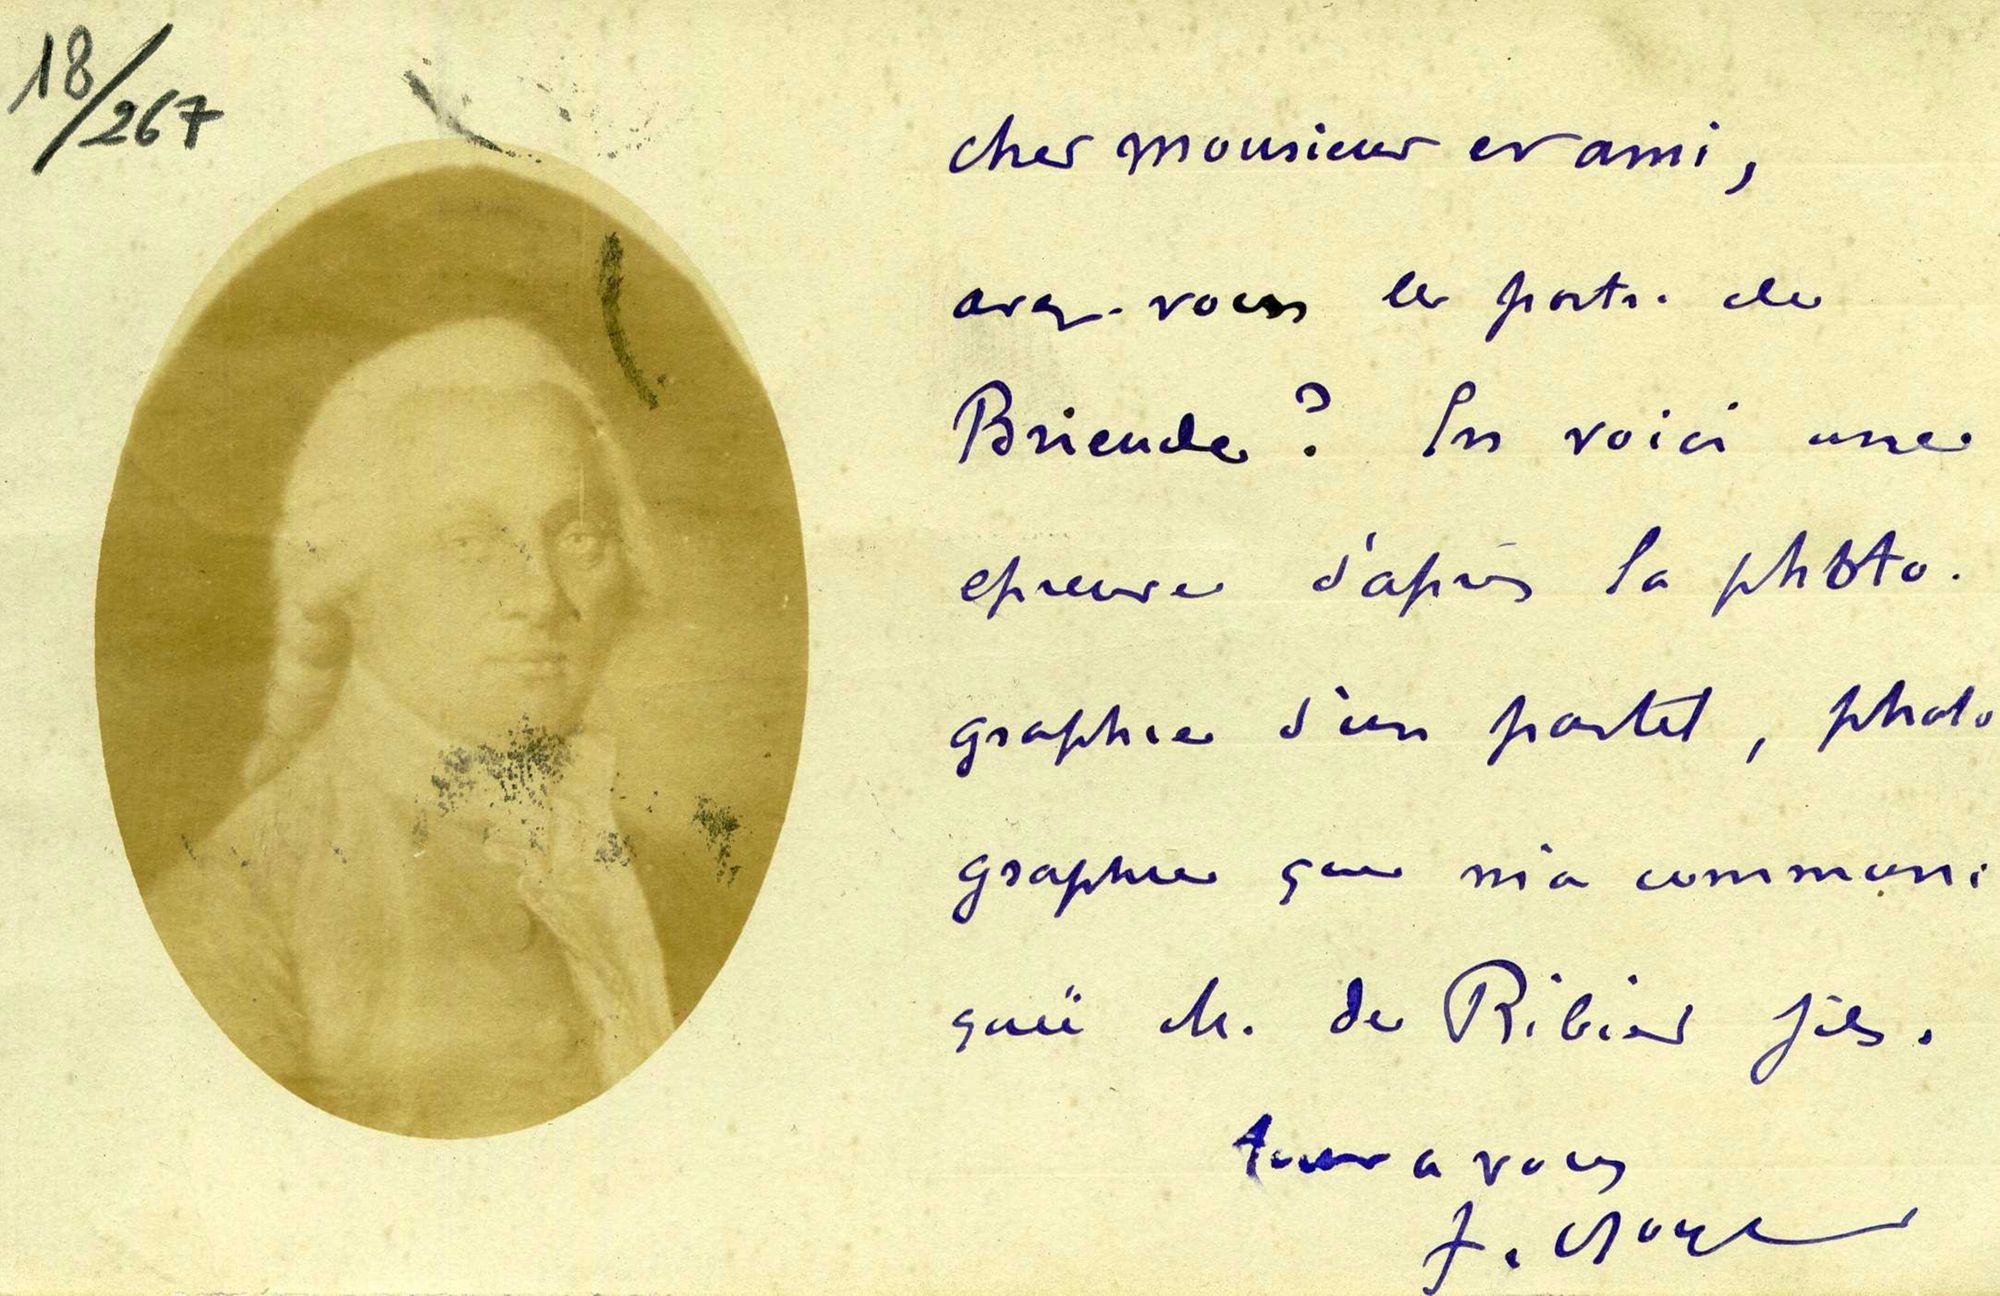 18/267
cher monsieur et ami,
avez-vous le portr. de
Briende? En voici une
epreuve d'après la photo-
graphie d'un pastel, photo
graphie que m'a communi
qué M. de Ribier fils.
tout a vous